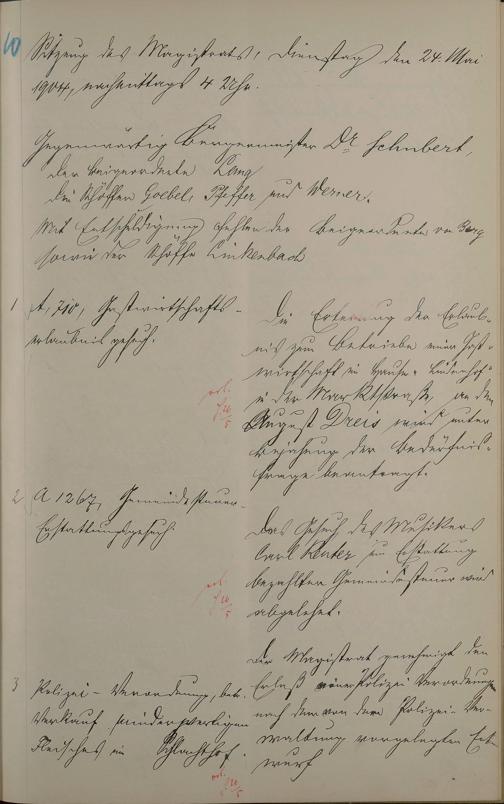 10
Sitzung des Magistrats, Dienstag den 24. Mai
1904, nachmittags 4 Uhr.
Gegenwärtig Bürgermeister Dr. Schubert,
der Beigeordnete Lang
die Schöffen Goebel, Pfeffer und Werner.
Mit Entschuldigung fehlen der Beigeordnete von Berg
sowie der Schöffe Linkenbach
1 A, 710, Gastwirtschafts-
erlaubnisgesuch.
Die Erteilung der Erlaub-
nis zum Betriebe einer Gast-
wirtschaft im Hause "Lindenhof"
in der Marktstraße, an den
August Dreis wird unter
Bejahung der Bedürfnis-
frage beantragt.
erl.
26/5
2 A 1267, Gemeindesteuer-
Erstattungsgesuch.
Das Gesuch des Musikers
Carl um Erstattung
bezahlter Gemeindesteuer wird
abgelehnt.
erl.
26/5
3 Polizei-Verordnung, betr.
Verkauf minderwertigen
Fleisches im Schlachthof.
Der Magistrat genehmigt den
Erlaß einer Polizei-Verordnung
nach dem von der Polizei-Ver-
waltung vorgelegten Ent-
wurf
erl. 26/5